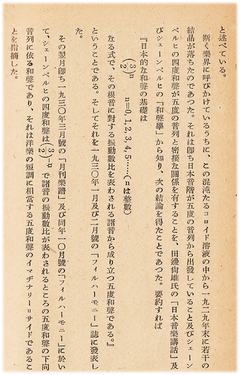 と述べている。
斯く樂界に呼びかけているうちに、この混沌たるコロイド溶液の中から一九二九年末に若干の
結晶が落ちたのであつた。それは即ち日本音階が五度の音列から出發していること及びシェーン
ベルヒの四度和聲が五度の音列と密接な關係を有することを、田邊尙雄氏の『日本音樂講話』及
びシェーンベルヒの『和聲學』から知り、次の結論を得たことであつた。要約すれば
『日本的な和聲の基礎は
(3/2)ⁿ n=0, 1, 2, 3, 4, 5……(nは整數)
なる式で、その根音に對する振動數比を表わされる諸音から成り立つ五度和聲である。』
ということである。そしてそれを一九三〇年一月及び二月號の『フィルハーモニー』誌に發表し
た。
その翌月即ち一九三〇年三月號の『月刊樂譜』及び同年一〇月號の『フィルハーモニー』に於い
て、シェーンベルヒの四度和聲は(3/2)⁻ⁿで諸音の振動數比が表わされるところの五度和聲の下向
音列に依る和聲であり、それは洋樂の短調に相當する五度和聲のイマヂナリー・サイドであるこ
とを指摘した。